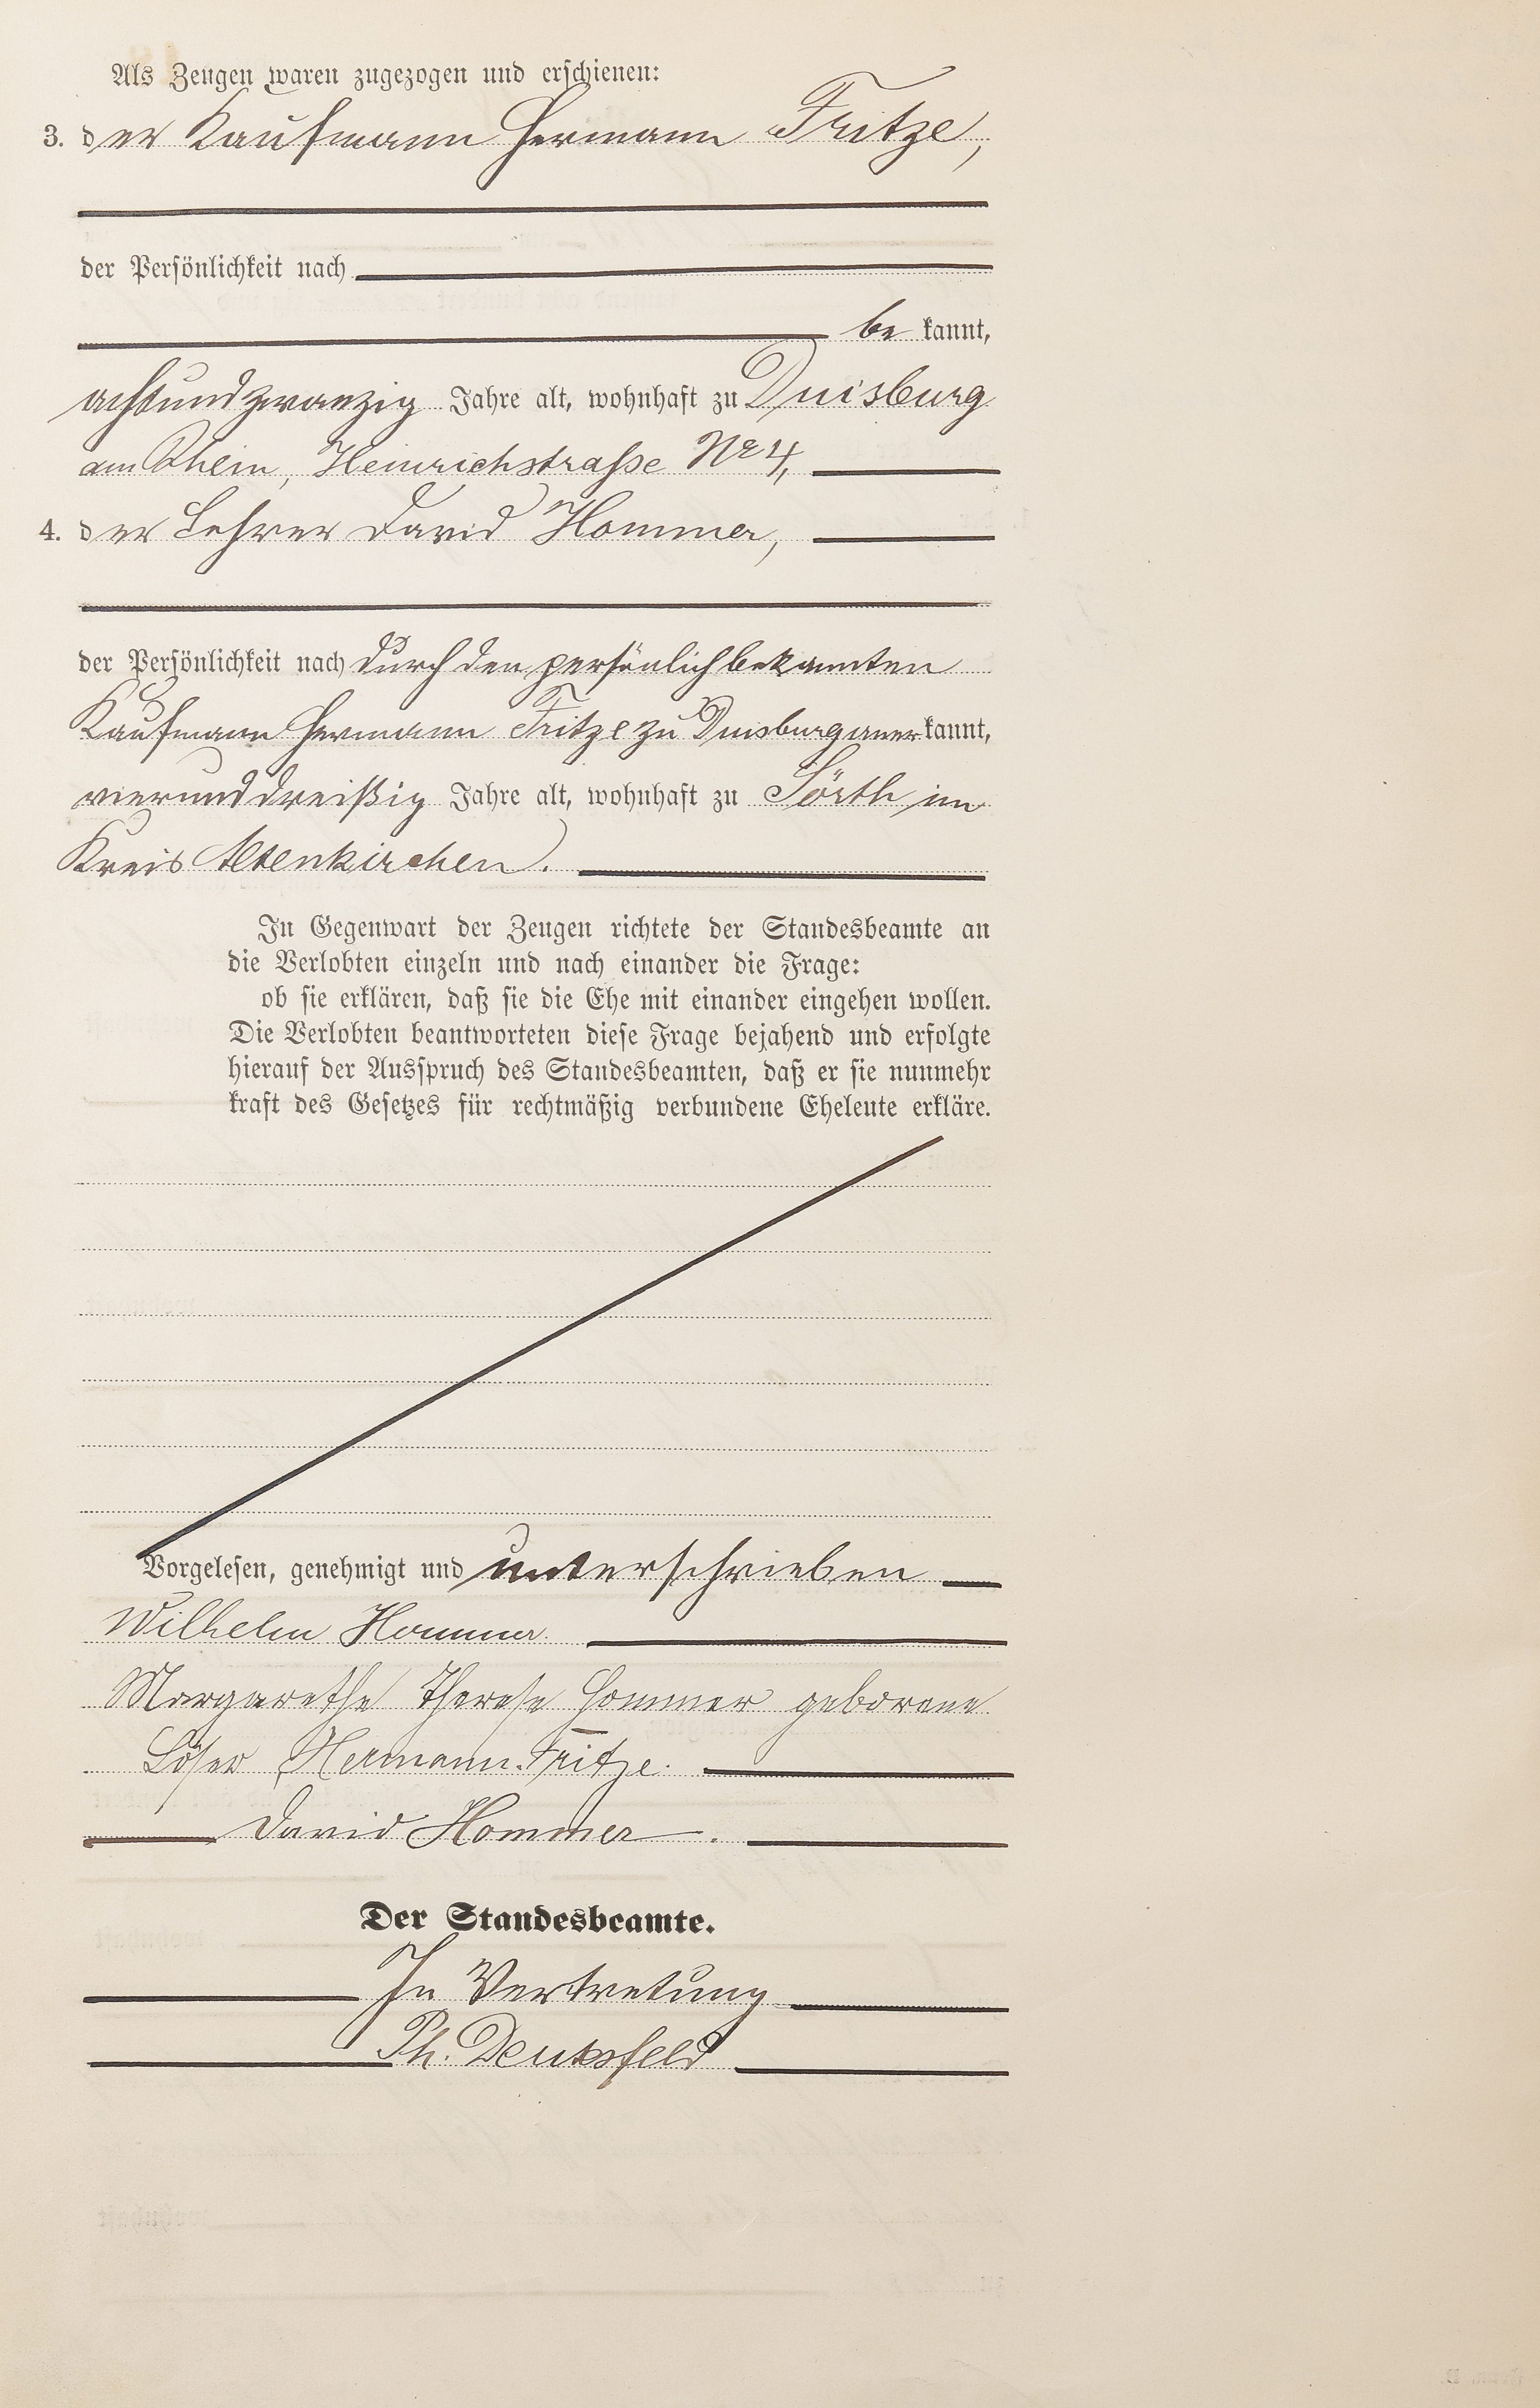 Als Zeugen waren zugezogen und erschienen:
3. der Kaufmann Hermann Fritze,
der Persönlichkeit nach
bekannt,
achtundzwanzig Jahre alt, wohnhaft zu Duisburg
am Rhein, Heinrichstraße No 4,
4. der Lehrer David Hommer,
der Persönlichkeit nach durch den persönlich bekannten
Kaufmann Hermann Fritze zu Duisburg anerkannt,
vierunddreißig Jahre alt, wohnhaft zu Sörth im
Kreis Altenkirchen.
In Gegenwart der Zeugen richtete der Standesbeamte an
die Verlobten einzeln und nach einander die Frage:
ob sie erklären, daß sie die Ehe mit einander eingehen wollen.
Die Verlobten beantworteten diese Frage bejahend und erfolgte
hierauf der Ausspruch des Standesbeamten, daß er sie nunmehr
kraft des Gesetzes für rechtmäßig verbundene Eheleute erkläre.
Vorgelesen, genehmigt und unterschrieben
Wilhelm Hommer.
Margarethe Therese Hommer geborene
Löser Hermann Fritze.
David Hommer.
Der Standesbeamte.
In Vertretung
Ph.